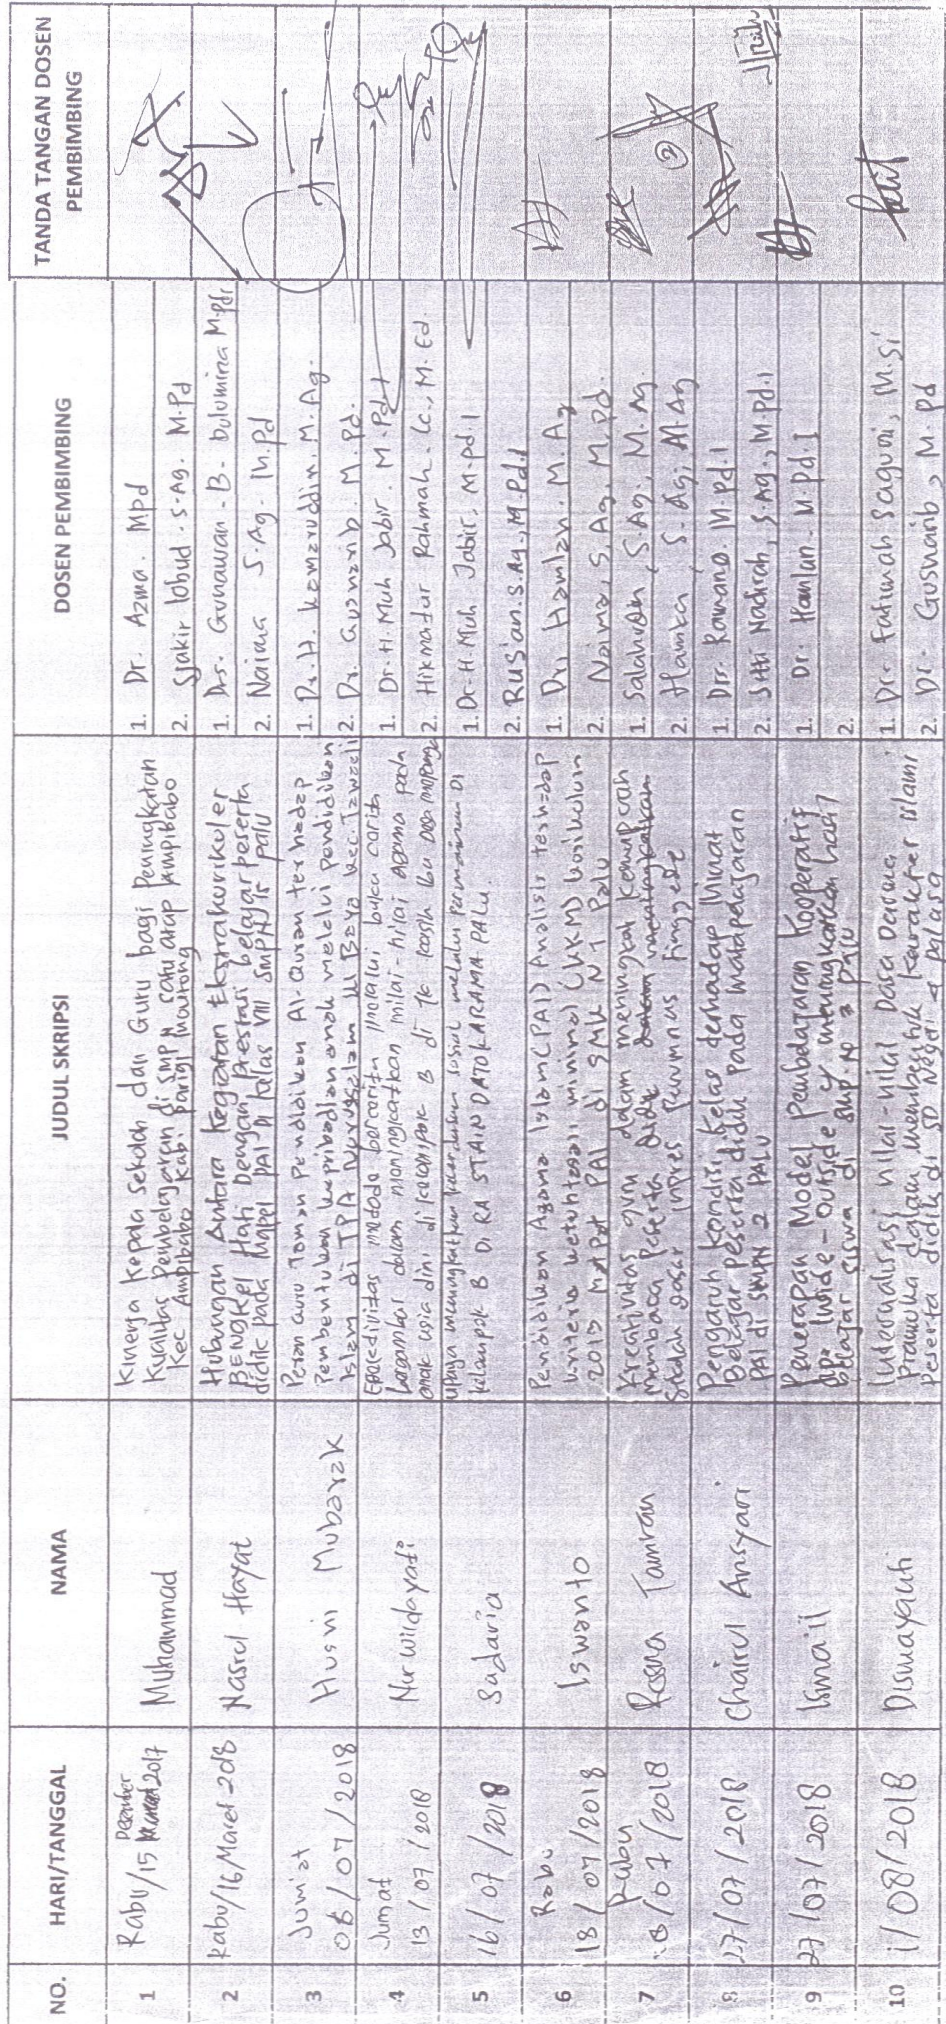 NO.
HARI/TANGGAL
NAMA
JUDUL SKRIPSI
DOSEN PEMBIMBING
TANDA TANGAN DOSEN
PEMBIMBING
1
Desember
Rabu/15 2017
Muhammad
Kinerja Kepala Sekolah dan Guru bagi Peningkatan
Kualitas Pembelajaran di SMP N satu atap Ampibabo
Kec Ampibabo Kab. parigi moutong
1. Dr. Azma. Mpd
2. Sjakir lobud. S.Ag. M.Pd
2
Rabu/16/Maret-2018
Nasrul Hayat
Hubungan Antara kegiatan Ekstrakurikuler
BENGKEL Hati Dengan Prestasi belajar peserta
didik pada Mapel PAI DI kelas VIII SMPN 15 palu
1. Drs. Gunawan. B. Dulumina M.Pdi
2. Naima S.Ag. M.Pd
3
Jum'at
06/07/2018
Husni Mubarak
Peran guru Taman Pendidikan Al-Quran terhadap
Pembentukan kepribadian anak melalui pendidikan
Islam di TPA Nurussalam
1. Dr. H. Kamaruddin. M.Ag.
2. Dr. Gusnarib. M.Pd.
4
Jumat
13/07/2018
Nurwidayati
Efektivitas metode bercerita melalui buku cerita
bergambar dalam meningkatkan nilai-nilai Agama pada
anak usia dini di kelompok B di TK
1. Dr. H. Muh Jabir. M.Pd.I
2. Hikmatur Rahmah. Lc., M.Ed.
5
16/07/2018
Sadaria
Upaya meningkatkan kecerdasan sosial melalui Permainan Di
kelompok B Di RA STAIN DATOKARAMA PALU.
1. Dr. H. Muh. Jabir, M.pd.I
2. Rusian. S.Ag, M.Pd.I
6
Rabu
18/07/2018
Iswanto
Pendidikan Agama Islam (PAI) Analisis terhadap
kriteria ketuntasan minimal (KKM) kurikulum
2013 mapel PAI di SMK N 1 Palu
1. Dr. Hamlan. M.Ag
2. Naima, S.Ag, M.Pd.
7
Rabu
18/07/2018
Rosna Tamran
Kreativitas guru dalam meningkat Kemampuan
membaca Peserta didik
Sekolah dasar inpres Purumnas tinggede
1. Salahudin, S.Ag., M.Ag.
2. Hamka, S.Ag, M.Ag
8
27/07/2018
Chairul Ansyari
Pengaruh kondisi Kelas terhadap Minat
Belajar Peserta didik Pada Matapelajaran
PAI di SMPN 2 PALU
1. Drs. Ramang. M.Pd.I
2. Sitti Nadirah, S.Ag., M.Pd.I
9
27/07/2018
Ismail
Penerapan Model Pembelajaran Kooperatif
Inside-Outside meningkatkan hasil
belajar siswa di SMP. N palu
1. Dr. Hamlan. M.Pd.I
2.
10
1/08/2018
Dismayanti
Internalisasi nilai-nilai Dasa Derma
Pramuka dalam membentuk karakter islami
peserta didik di SD Negeri 4 palasa
1. Dr. Fatimah Saguni, M.Si
2. Dr. Gusnarib, M.Pd